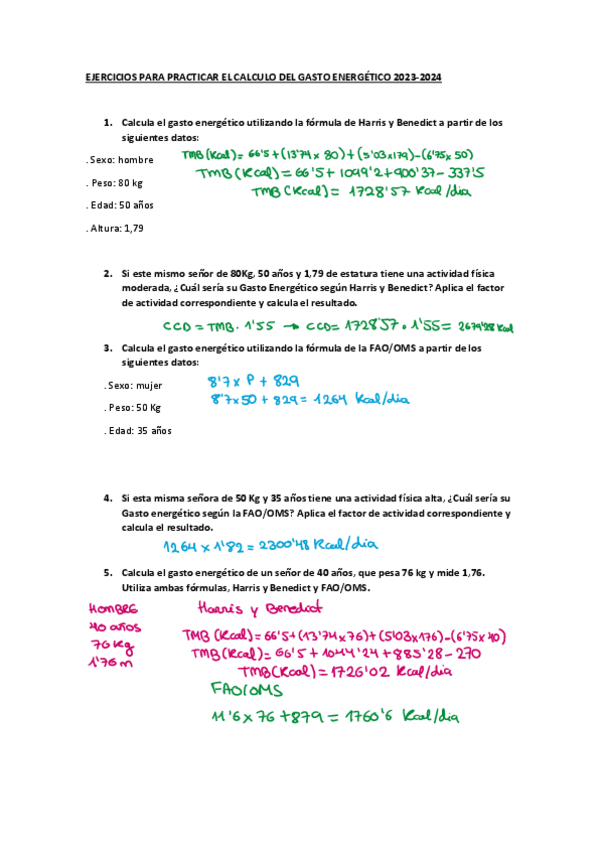 EJERCICIOS PARA PRACTICAR EL CALCULO DEL GASTO ENERGÉTICO 2023-2024
1. Calcula el gasto energético utilizando la fórmula de Harris y Benedict a partir de los
siguientes datos:
. Sexo: hombre
TMB (Kcal) = 66'5 + (13'74 x 80) + (5'03 x 179) - (6'75 x 50)
. Peso: 80 kg
TMB (Kcal) = 66'5 + 1099'2 + 900'37 - 337'5
TMB (Kcal) = 1728'57 Kcal/dia
. Edad: 50 años
. Altura: 1,79
2. Si este mismo señor de 80Kg, 50 años y 1,79 de estatura tiene una actividad física
moderada, ¿Cuál sería su Gasto Energético según Harris y Benedict? Aplica el factor
de actividad correspondiente y calcula el resultado.
CCD = TMB · 1'55 → CCD = 1728'57 · 1'55 = 2679'28 Kcal
3. Calcula el gasto energético utilizando la fórmula de la FAO/OMS a partir de los
siguientes datos:
. Sexo: mujer
8'7 x P + 829
8'7 x 50 + 829 = 1264 Kcal/dia
. Peso: 50 Kg
. Edad: 35 años
4. Si esta misma señora de 50 Kg y 35 años tiene una actividad física alta, ¿Cuál sería su
Gasto energético según la FAO/OMS? Aplica el factor de actividad correspondiente y
calcula el resultado.
1264 x 1'82 = 2300'48 Kcal/dia
5. Calcula el gasto energético de un señor de 40 años, que pesa 76 kg y mide 1,76.
Utiliza ambas fórmulas, Harris y Benedict y FAO/OMS.
HOMBRE
40 años
76 Kg
1'76 m
Harris y Benedict
TMB (Kcal) = 66'5 + (13'74 x 76) + (5'03 x 176) - (6'75 x 40)
TMB (Kcal) = 66'5 + 1044'24 + 885'28 - 270
TMB (Kcal) = 1726'02 Kcal/dia
FAO/OMS
11'6 x 76 + 879 = 1760'6 Kcal/dia